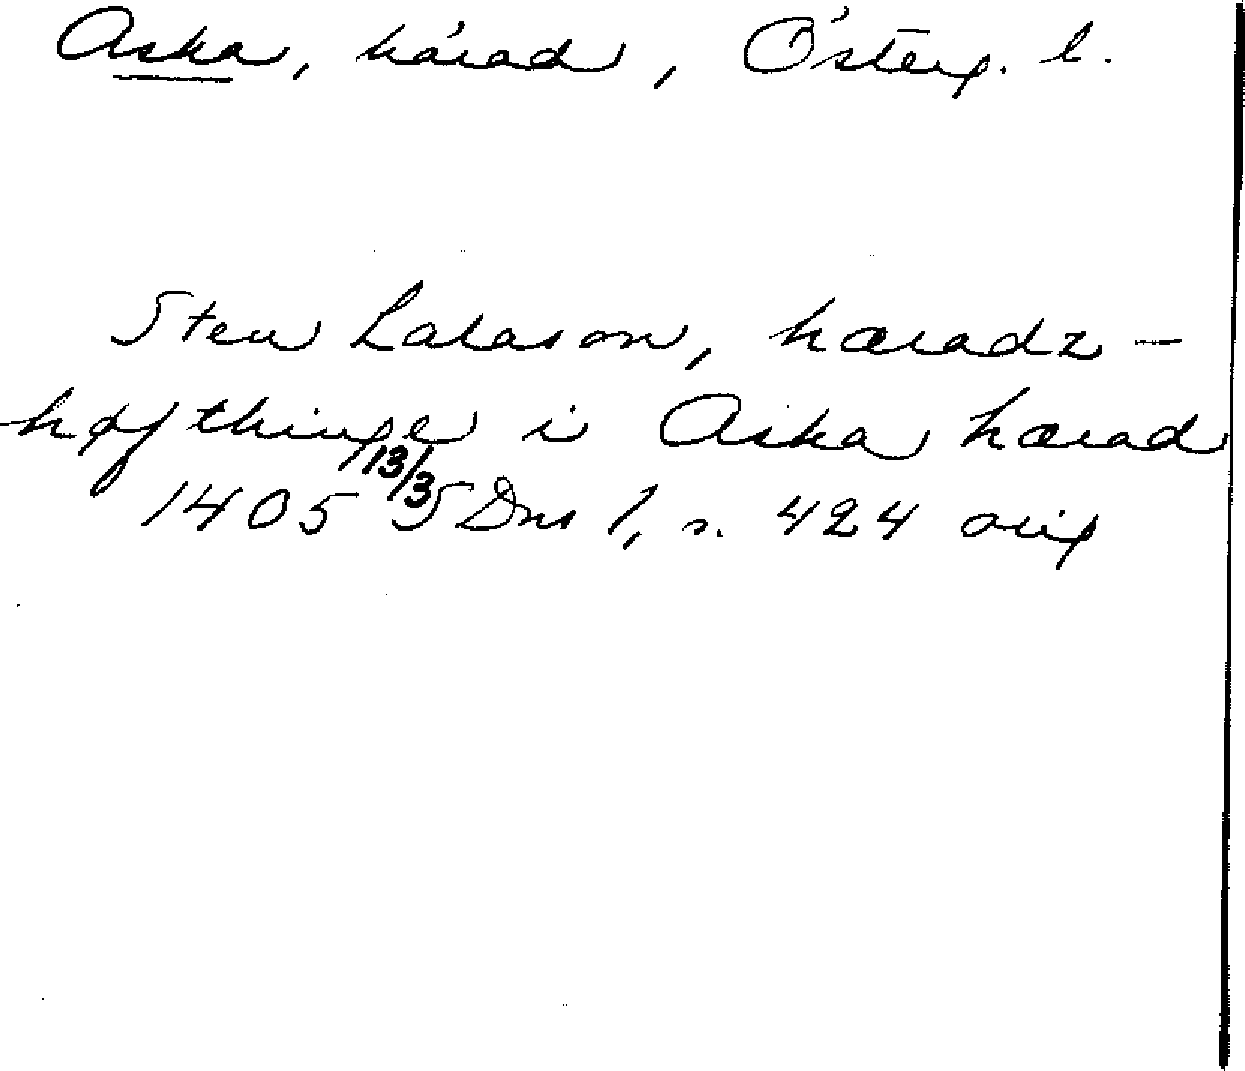 Aska, härad, Österg. l.
Sten Lalason, hæradz-
høfthinge i Aska hærad
1405 13/3 SDns 1, s. 424 orig